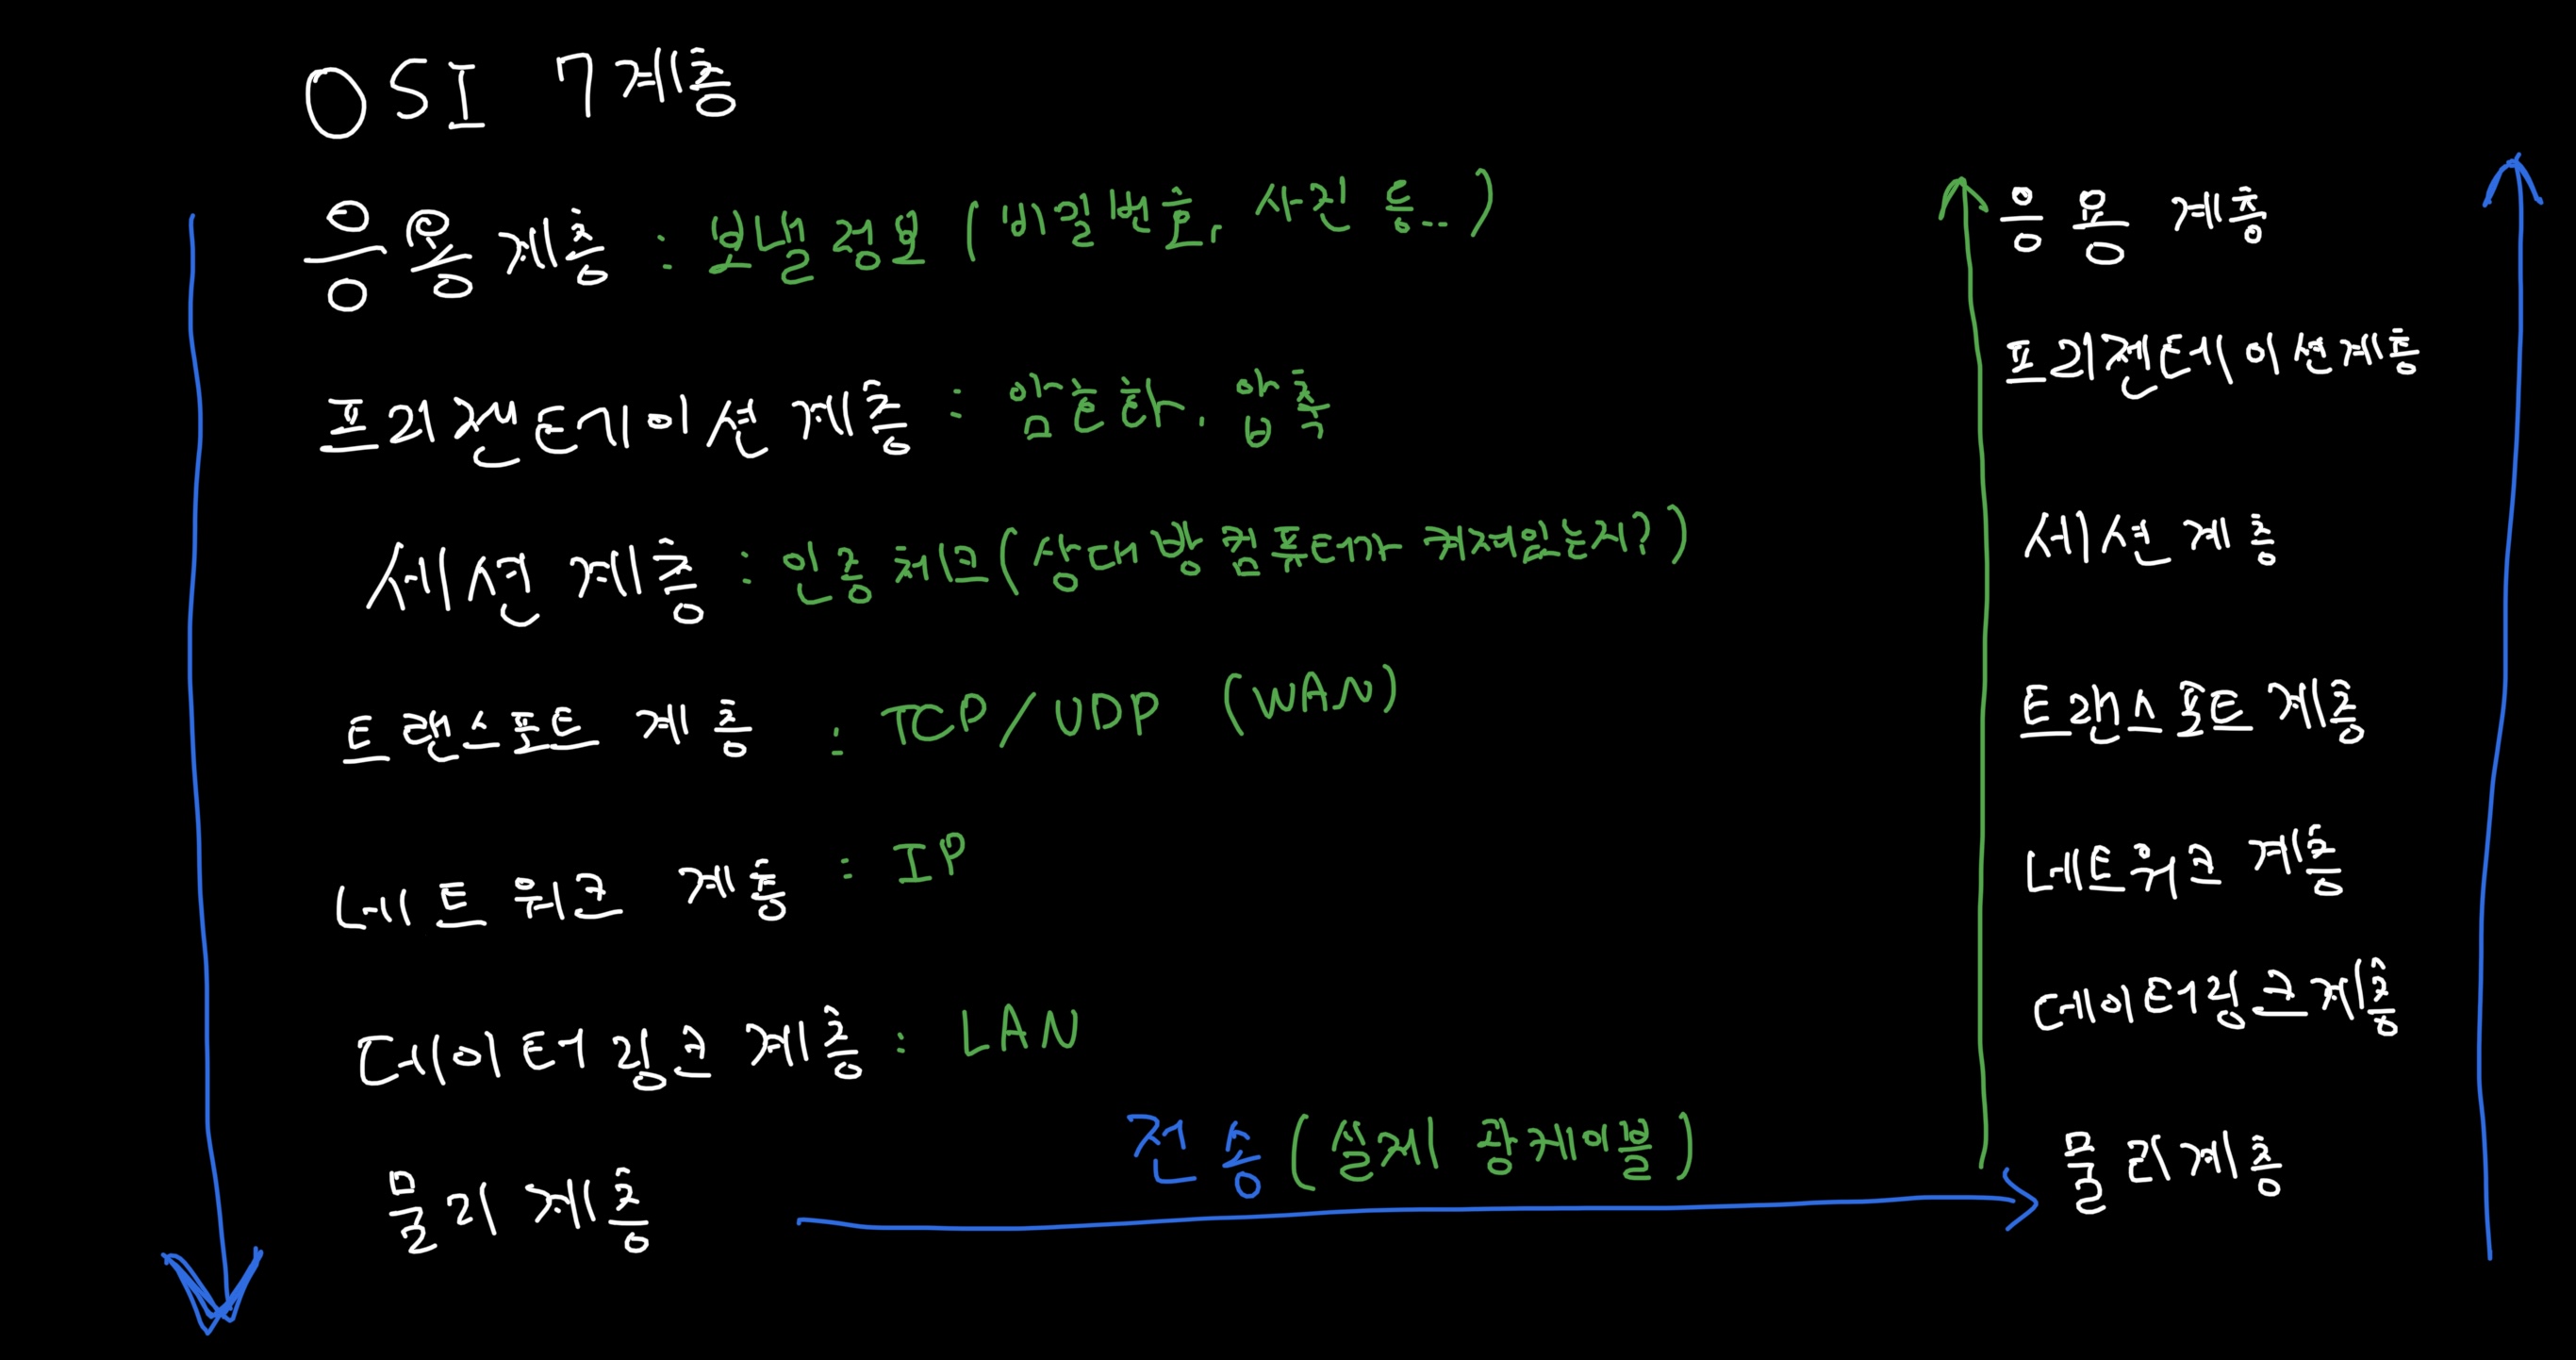 OSI 7계층
응용계층 : 보낼정보 (비밀번호, 사진 등..)
프리젠테이션 계층 : 암호화, 압축
세션 계층 : 인증체크(상대방 컴퓨터가 켜져있는지?)
트랜스포트 계층 : TCP/UDP (WAN)
네트워크 계층 : IP
데이터링크 계층 : LAN
물리계층
전송 (실제 광케이블)
응용 계층
프리젠테이션계층
세션 계층
트랜스포트 계층
네트워크 계층
데이터링크계층
물리계층